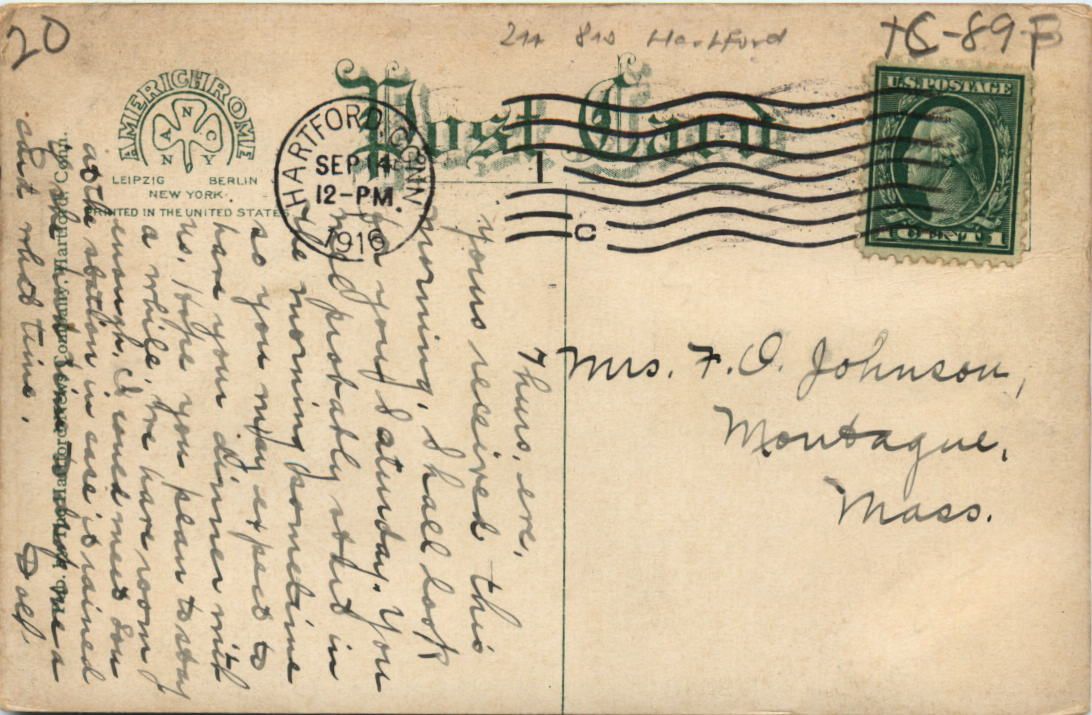 20
211 810 Hartford
+C-89-F
AMERICHROME
ANC
NY
LEIPZIG BERLIN
NEW YORK
PRINTED IN THE UNITED STATES
Post Card
HARTFORD, CONN.
SEP 14
12-PM
1916
1
C
U.S. POSTAGE
1 CENT 1
Thurs, eve,
yours received this
morning, I shall look
for you Saturday. You
will probably start in
the morning sometime
so you may expect to
have your dinner with
us. Hope you plan to stay
a while, we have room
enough. I could meet you
at the station in case it rained
if you drop me a
card what time.
Pub. by The Hartford News Company, Hartford, Conn.
Mrs. F. O. Johnson,
Montague,
Mass.